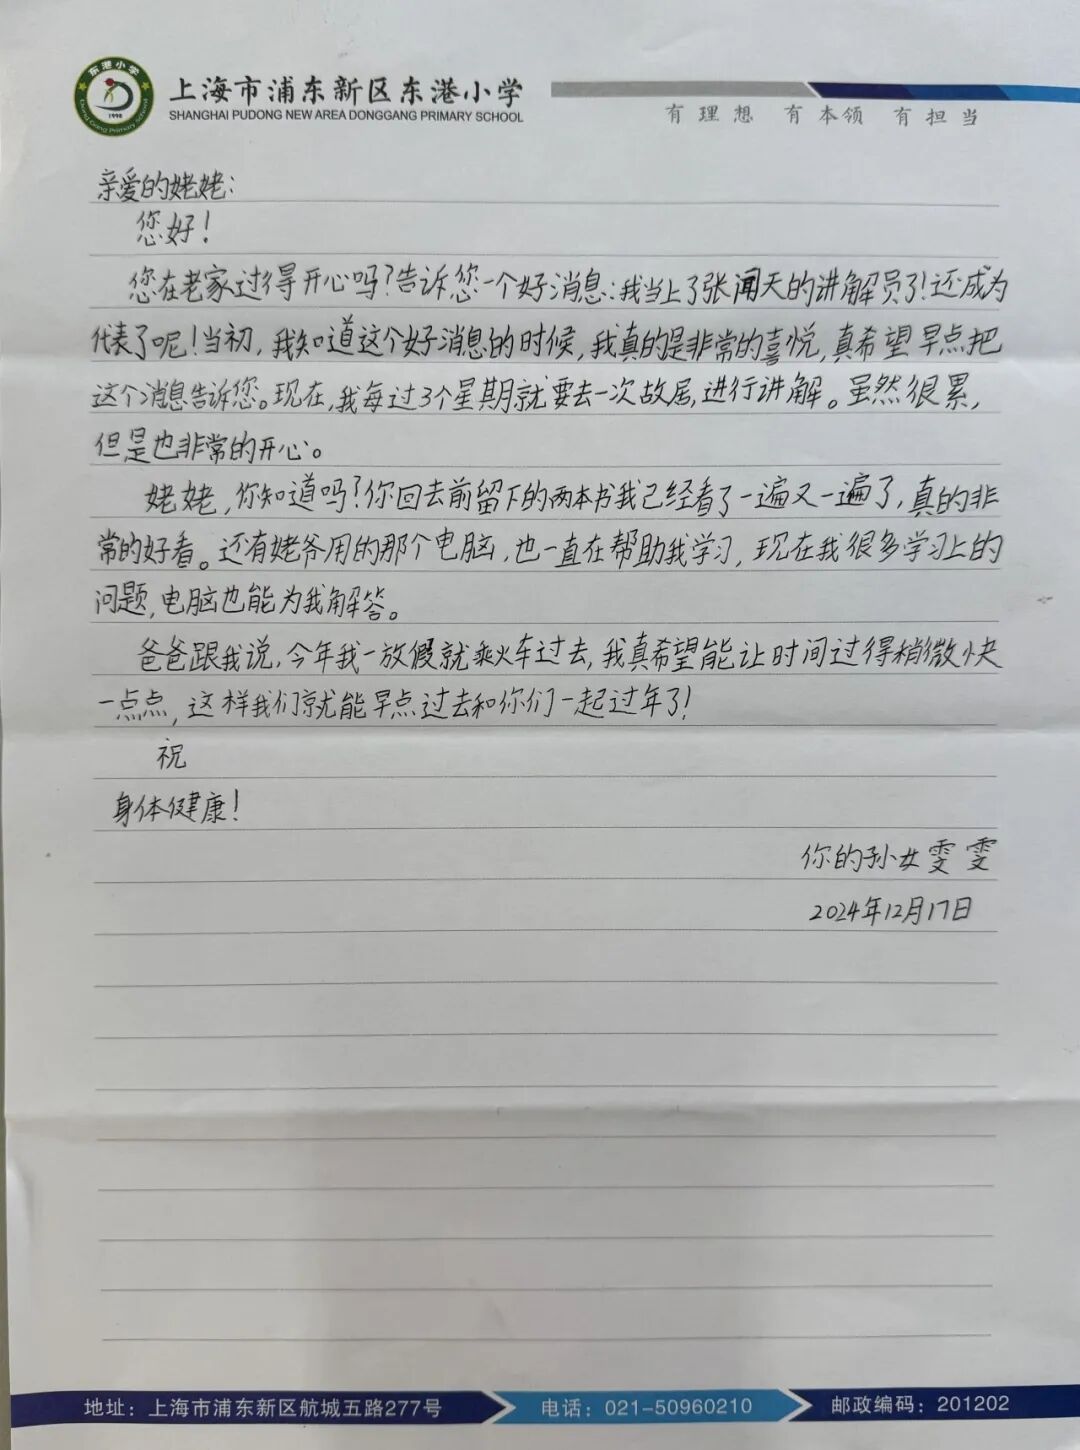 东港小学
Dong Gang Primary School
1998
上海市浦东新区东港小学
SHANGHAI PUDONG NEW AREA DONGGANG PRIMARY SCHOOL
有理想 有本领 有担当
亲爱的姥姥：
您好！
您在老家过得开心吗？告诉您一个好消息：我当上了张闻天的讲解员了！还成为
代表了呢！当初，我知道这个好消息的时候，我真的是非常的喜悦，真希望早点把
这个消息告诉您。现在，我每过3个星期就要去一次故居，进行讲解。虽然很累，
但是也非常的开心。
姥姥，你知道吗？你回去前留下的两本书我已经看了一遍又一遍了，真的非
常的好看。还有姥爷用的那个电脑，也一直在帮助我学习，现在我很多学习上的
问题，电脑也能为我解答。
爸爸跟我说，今年我一放假就乘火车过去，我真希望能让时间过得稍微快
一点点，这样我们就能早点过去和你们一起过年了！
祝
身体健康！
你的孙女雯雯
2024年12月17日
地址：上海市浦东新区航城五路277号
电话：021-50960210
邮政编码：201202